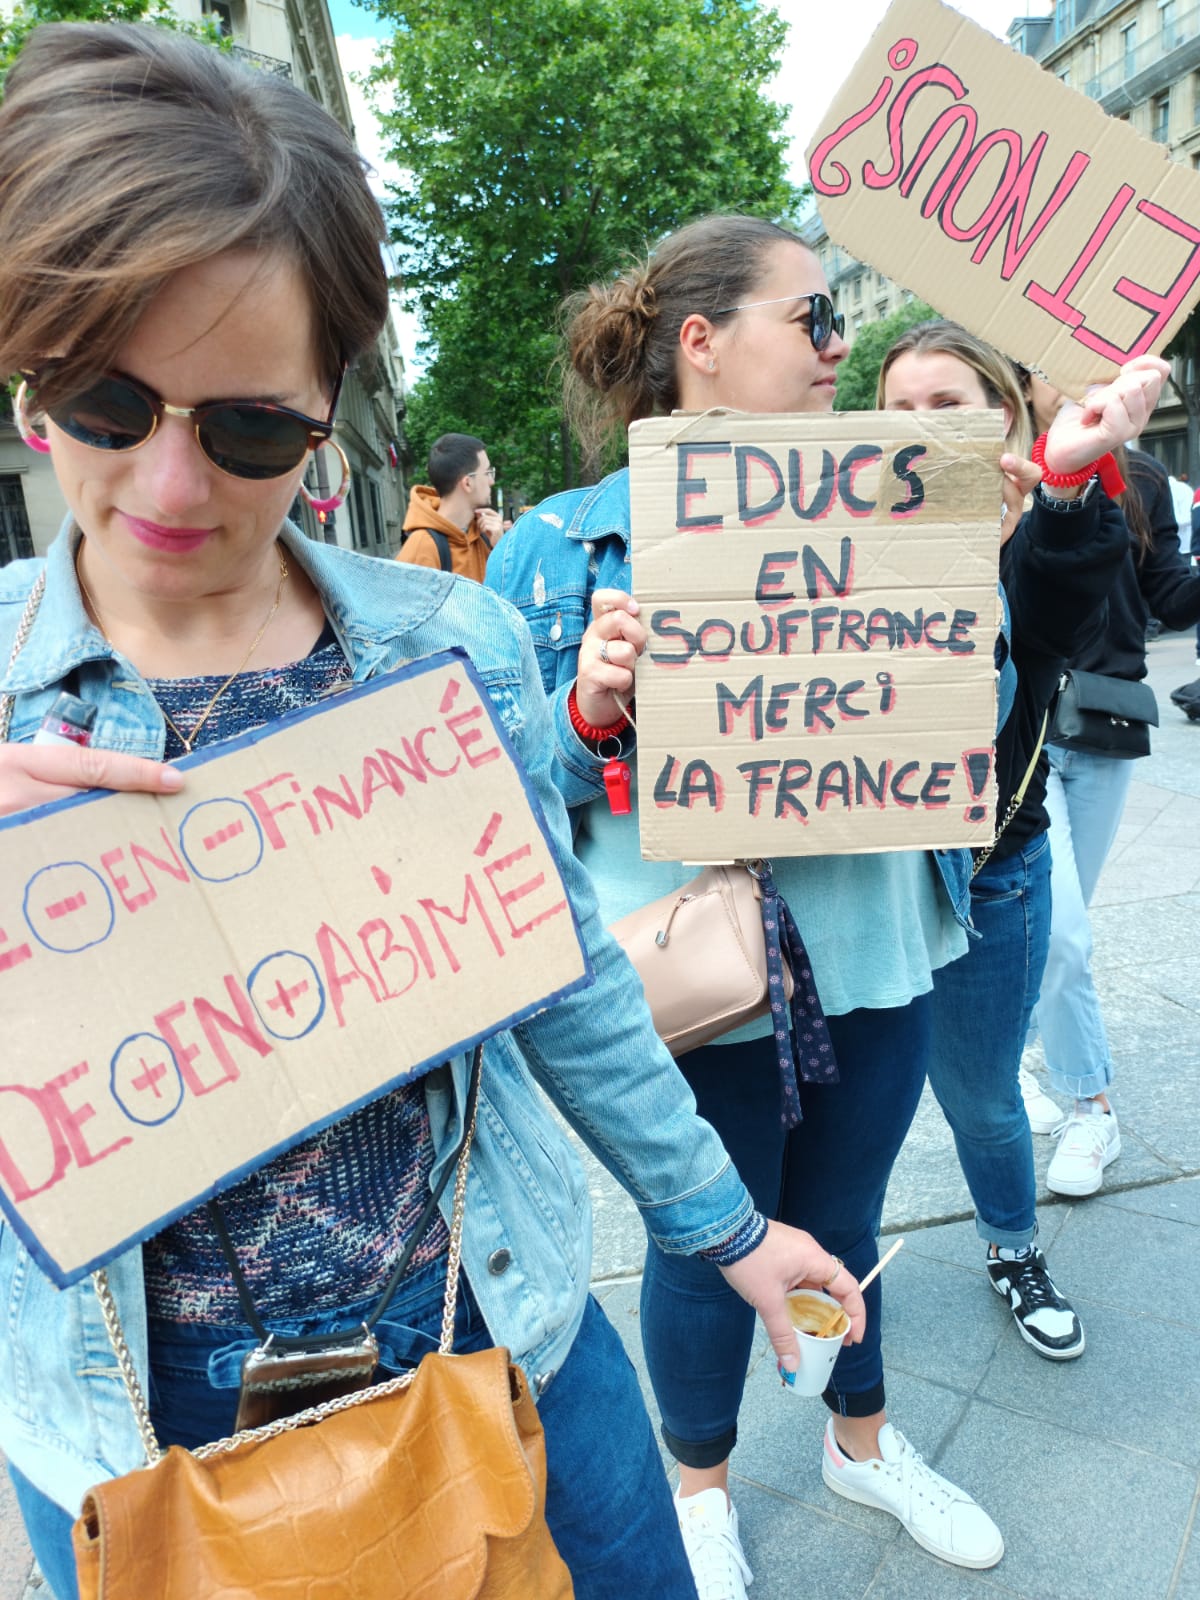 ET NOUS?
EDUCS
EN
SOUFFRANCE
MERCi
LA FRANCE!
E - EN - FiNANCÉ
DE + EN + ABiMÉ